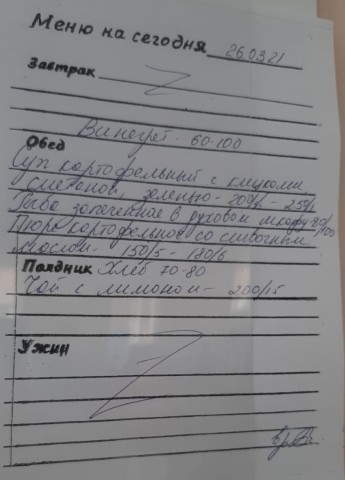 Меню на сегодня 26.03.21
Завтрак
Винегрет - 60-100
Обед
Суп картофельный с клецками
сметаной, зеленью - 200/5 - 250/5
Рыба запеченная в духовом шкафу 80/100
Пюре картофельное со сливочным
маслом - 150/5 - 180/6
Полдник Хлеб 70-80
Чай с лимоном - 200/15
Ужин